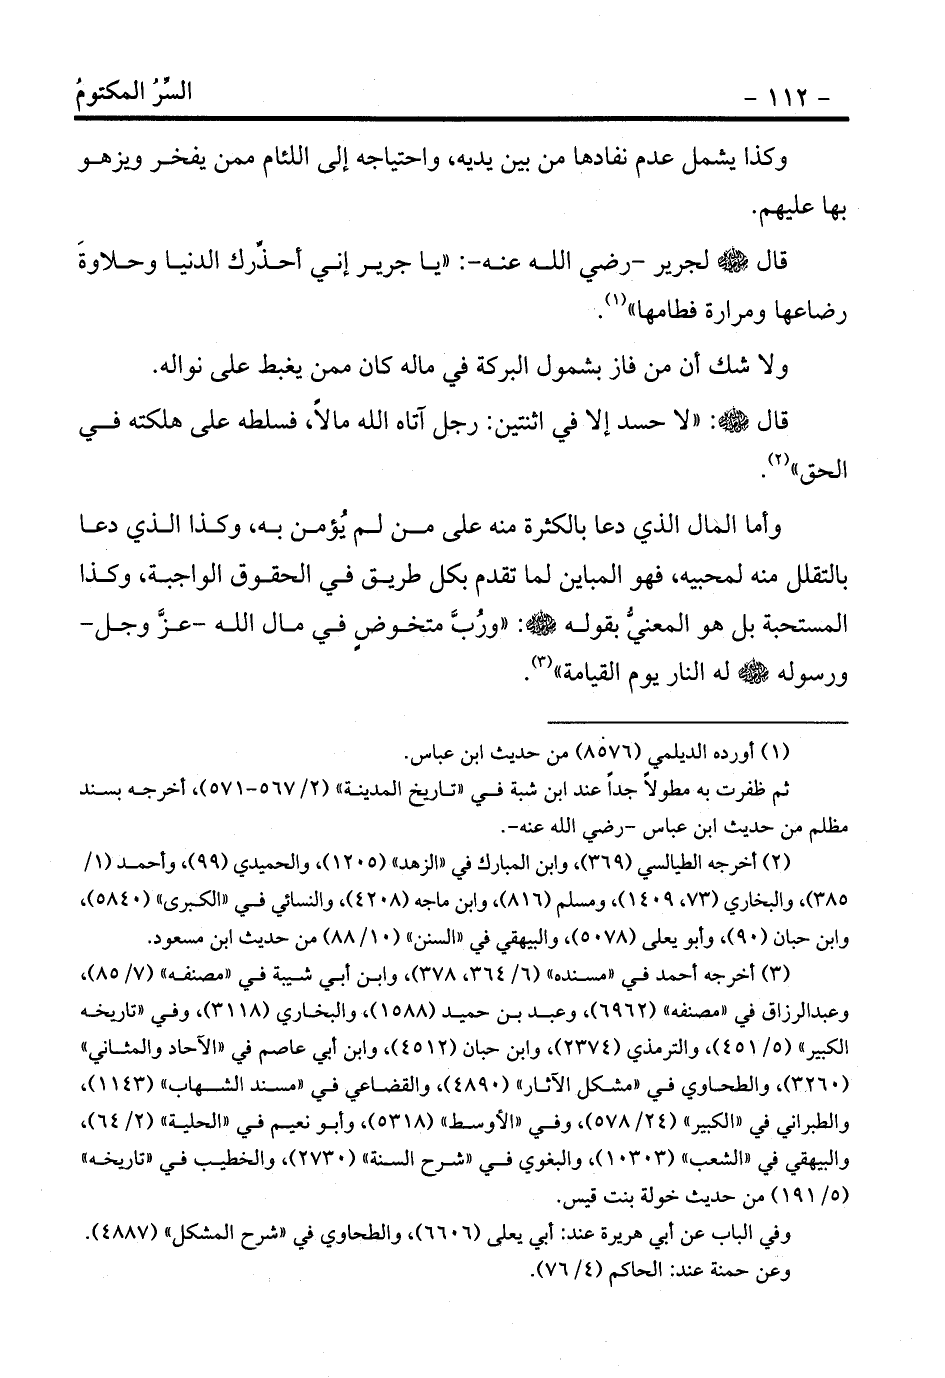 - ١١٢ - السِّرُ المكتومُ
وكذا يشمل عدم نفادها من بين يديه، واحتياجه إلى اللئام ممن يفخر ويزهو
بها عليهم.
قال ﷺ لجرير -رضي الله عنه-: «يا جرير إني أحذِّرك الدنيا وحلاوةَ
رضاعها ومرارة فطامها»(١).
ولا شك أن من فاز بشمول البركة في ماله كان ممن يغبط على نواله.
قال ﷺ: «لا حسد إلا في اثنتين: رجل آتاه الله مالاً، فسلطه على هلكته في
الحق»(٢).
وأما المال الذي دعا بالكثرة منه على من لم يُؤمن به، وكذا الذي دعا
بالتقلل منه لمحبيه، فهو المباين لما تقدم بكل طريق في الحقوق الواجبة، وكذا
المستحبة بل هو المعنيُّ بقوله ﷺ: «ورُبَّ متخوضٍ في مال الله -عزَّ وجل-
ورسوله ﷺ له النار يوم القيامة»(٣).
(١) أورده الديلمي (٨٥٧٦) من حديث ابن عباس.
ثم ظفرت به مطولاً جداً عند ابن شبة في «تاريخ المدينة» (٢/ ٥٦٧-٥٧١)، أخرجه بسند
مظلم من حديث ابن عباس -رضي الله عنه-.
(٢) أخرجه الطيالسي (٣٦٩)، وابن المبارك في «الزهد» (١٢٠٥)، والحميدي (٩٩)، وأحمد (١/
٣٨٥)، والبخاري (٧٣، ١٤٠٩)، ومسلم (٨١٦)، وابن ماجه (٤٢٠٨)، والنسائي في «الكبرى» (٥٨٤٠)،
وابن حبان (٩٠)، وأبو يعلى (٥٠٧٨)، والبيهقي في «السنن» (١٠/ ٨٨) من حديث ابن مسعود.
(٣) أخرجه أحمد في «مسنده» (٦/ ٣٦٤، ٣٧٨)، وابن أبي شيبة في «مصنفه» (٧/ ٨٥)،
وعبدالرزاق في «مصنفه» (٦٩٦٢)، وعبد بن حميد (١٥٨٨)، والبخاري (٣١١٨)، وفي «تاريخه
الكبير» (٥/ ٤٥١)، والترمذي (٢٣٧٤)، وابن حبان (٤٥١٢)، وابن أبي عاصم في «الآحاد والمثاني»
(٣٢٦٠)، والطحاوي في «مشكل الآثار» (٤٨٩٠)، والقضاعي في «مسند الشهاب» (١١٤٣)،
والطبراني في «الكبير» (٢٤/ ٥٧٨)، وفي «الأوسط» (٥٣١٨)، وأبو نعيم في «الحلية» (٢/ ٦٤)،
والبيهقي في «الشعب» (١٠٣٠٣)، والبغوي في «شرح السنة» (٢٧٣٠)، والخطيب في «تاريخه»
(٥/ ١٩١) من حديث خولة بنت قيس.
وفي الباب عن أبي هريرة عند: أبي يعلى (٦٦٠٦)، والطحاوي في «شرح المشكل» (٤٨٨٧).
وعن حمنة عند: الحاكم (٤/ ٧٦).